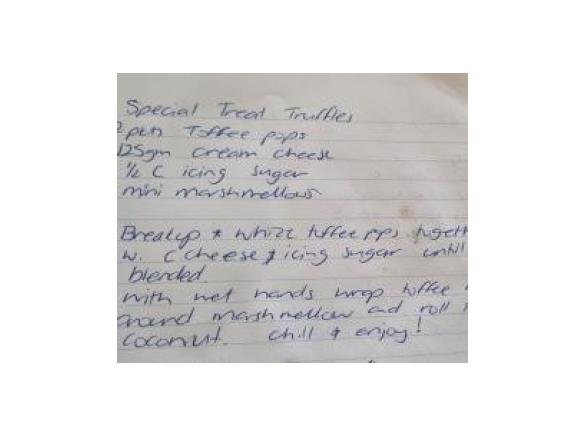 Special Treat Truffles
2 pkts Toffee pops
125gm cream cheese
1/2 C icing sugar
mini marshmellows
Breakup & whizz toffee pops togeth
w. C cheese & icing sugar untill
blended.
with wet hands wrap toffee
around marshmellow and roll
coconut. Chill & enjoy!